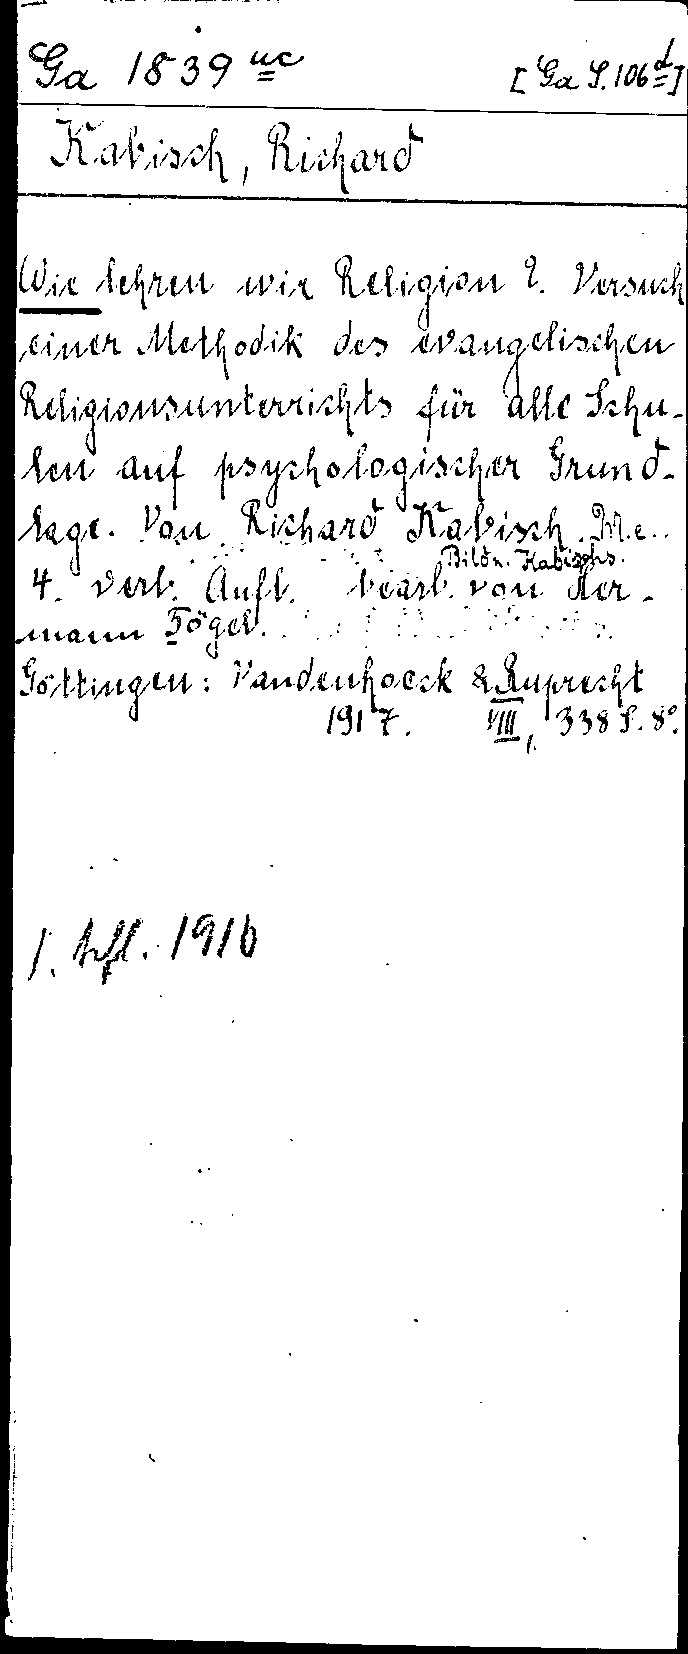 Ga 1839 uc [Ga S. 106 d]
Kabisch, Richard
Wie lehren wir Religion? Versuch
einer Methodik des evangelischen
Religionsunterrichts für alle Schu-
len auf psychologischer Grund-
lage. Von Richard Kabisch. M. e.
Bildn. Kabischs.
4. verb. Aufl. bearb. von Her-
mann Tögel.
Göttingen: Vandenhoeck & Ruprecht
1917. VIII, 338 S. 8°.
1. Aufl. 1910